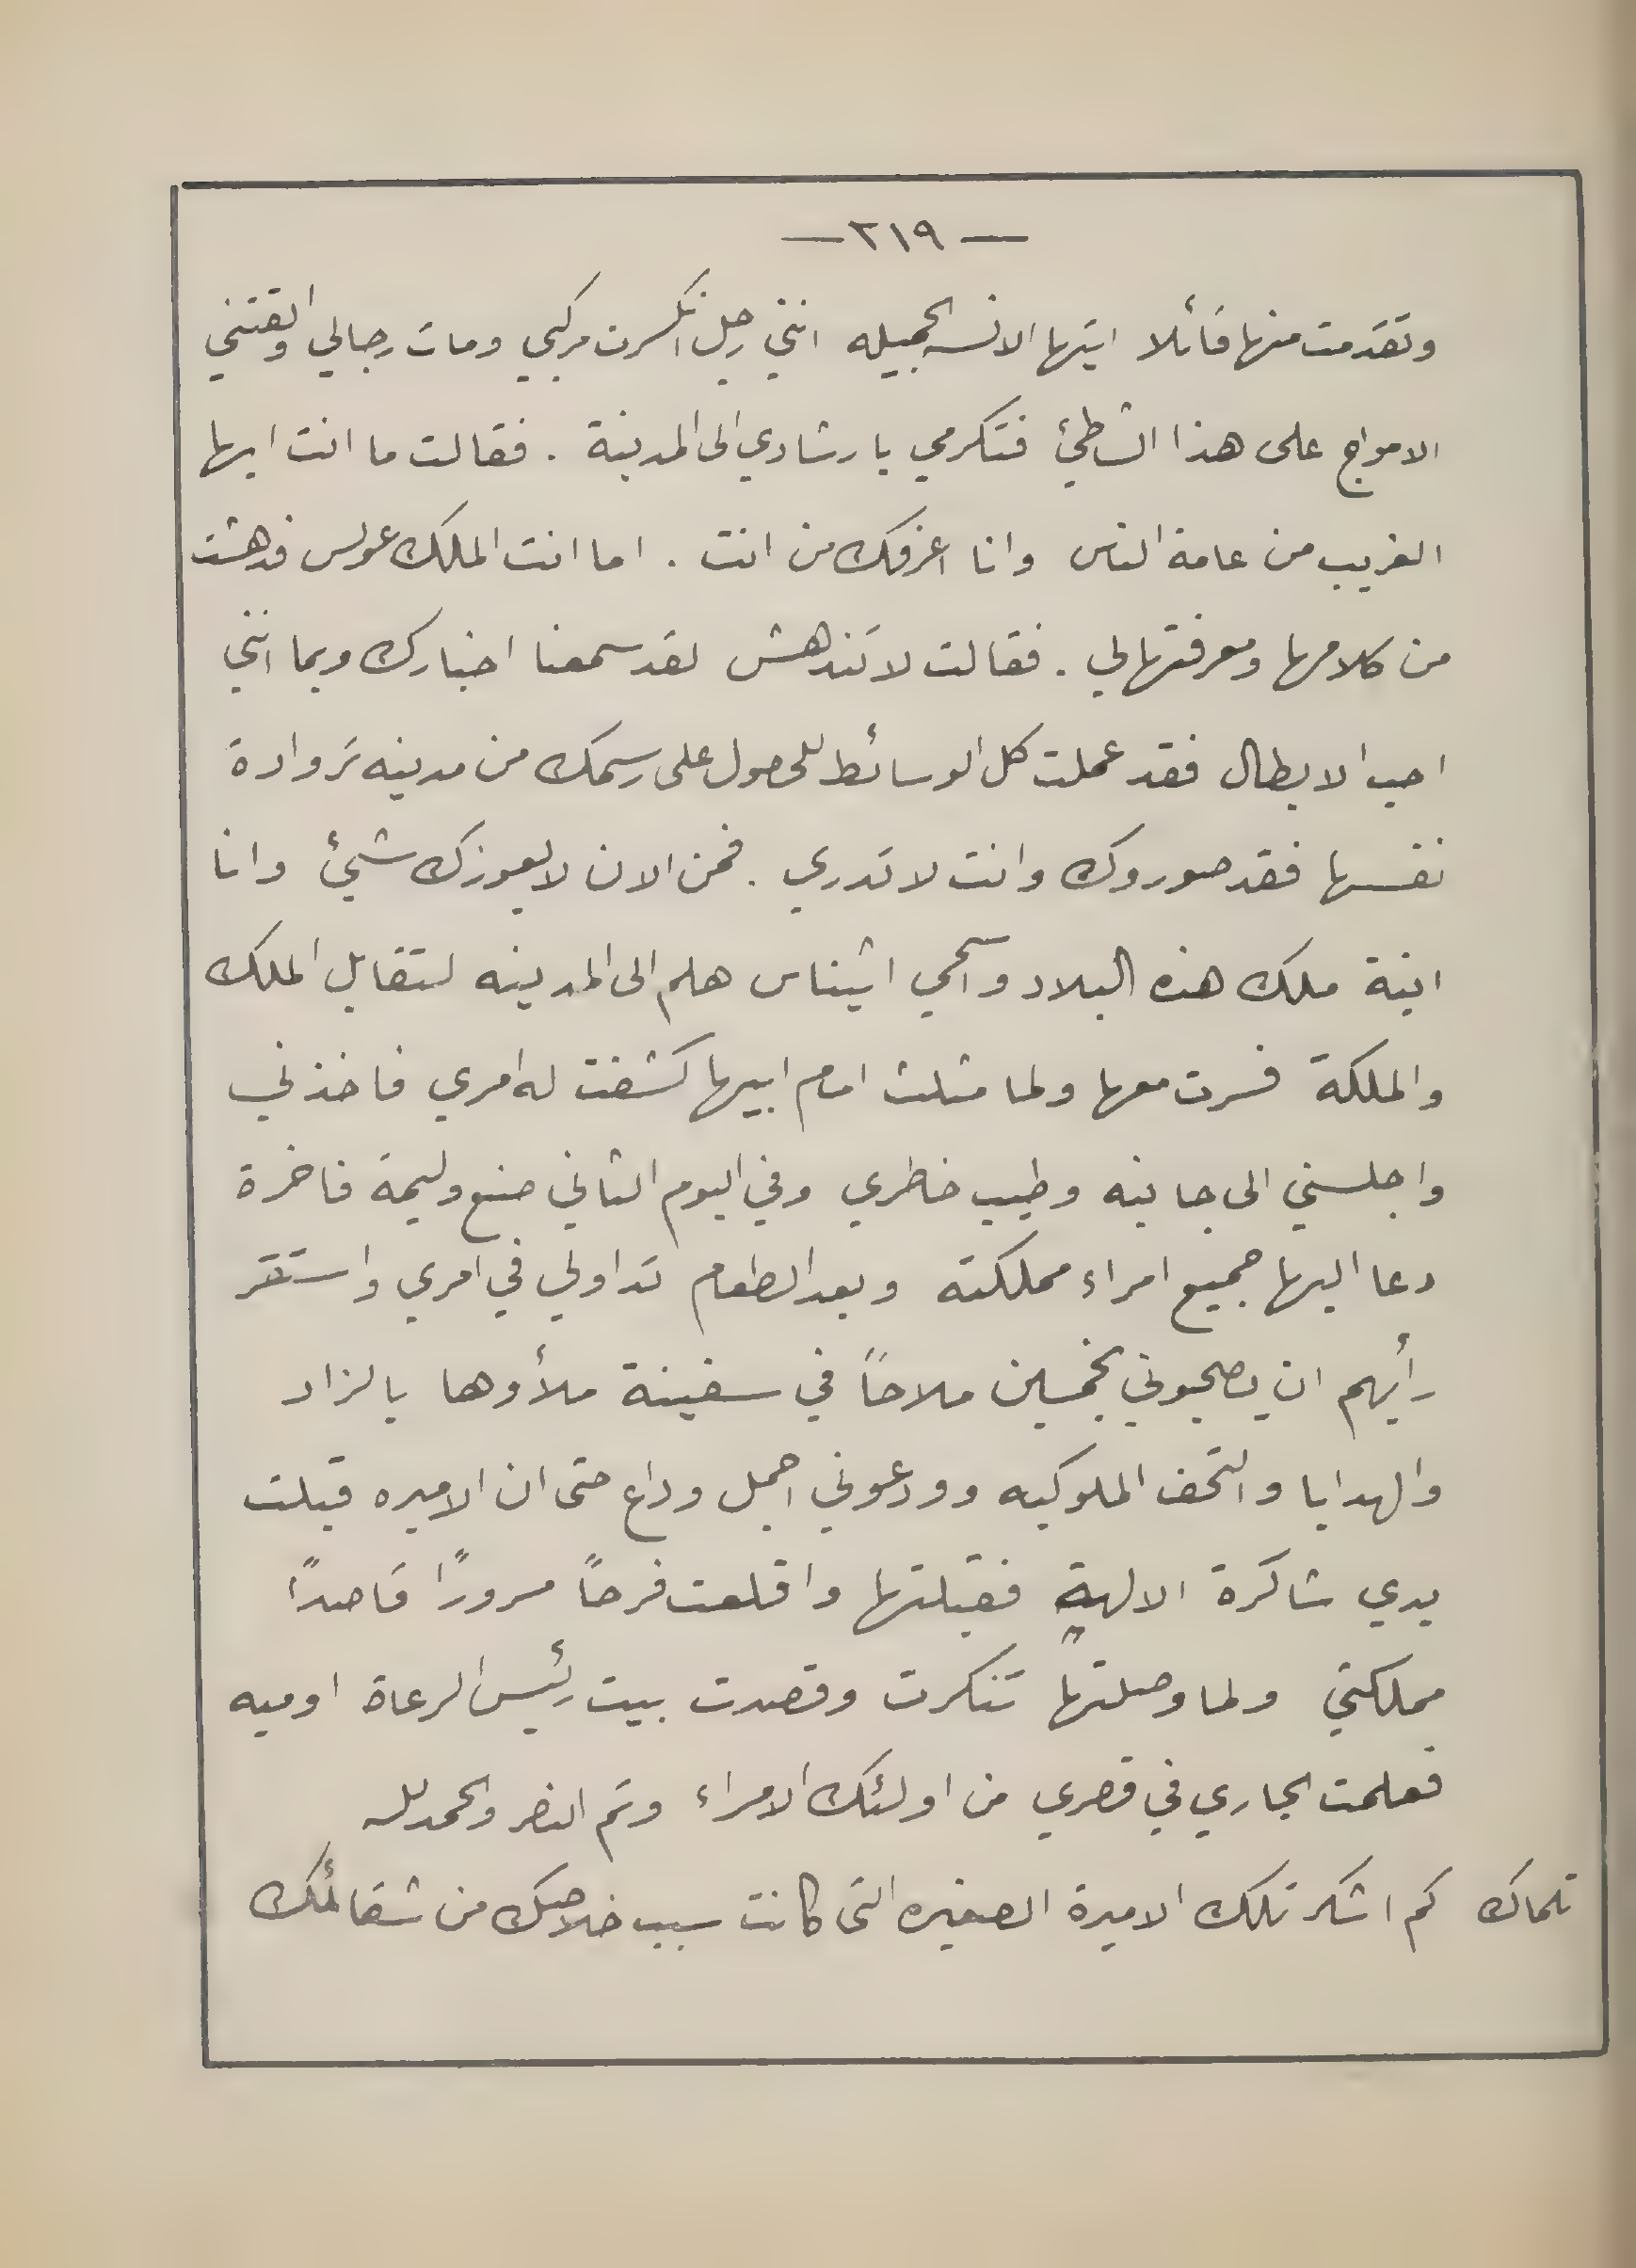 — ٢١٩ —
وتقدمت منها قائلا ايتها الانسه الجميله انني رجل انكسرت مركبي ومات رجالي والقتني
الامواج على هذا الشاطئ فتكرمي بارشادي الى المدينة . فقالت ما انت ايها
الغريب من عامة الناس وانا اعرفك من انت . اما انت الملك عولس فدهشت
من كلامها ومعرفتها لي . فقالت لا تندهش لقد سمعنا اخبارك وبما انني
احب الابطال فقد عملت كل الوسائط للحصول على رسمك من مدينه تروادة
نفسها فقد صوروك وانت لا تدري . فمن الان لا يعوزك شيئ وانا
ابنة ملك هذه البلاد واسمي اثيناس هلم الى المدينه لتقابل الملك
والملكة فسرت معها ولما مثلت امام ابيها كشفت له امري فاخذني
واجلسني الى جانبه وطيب خاطري وفي اليوم الثاني صنع وليمة فاخرة
دعا اليها جميع امراء مملكته وبعد الطعام تداولي في امري واستقر
رأيهم ان يصحبوني بخمسين ملاحاً في سفينة ملأوها بالزاد
والهدايا والتحف الملوكيه وودعوني اجمل وداع حتى ان الاميره قبلت
يدي شاكرة الالهة فقبلتها واقلعت فرحاً مسروراً قاصداً
مملكتي ولما وصلتها تنكرت وقصدت بيت رئيس الرعاة اوميه
فعلمت الجاري في قصري من اولئك الامراء وتم النصر والحمد لله
تلماك كم اشكر تلك الاميرة الصغيره التي كانت سبب خلاصك من شقائك